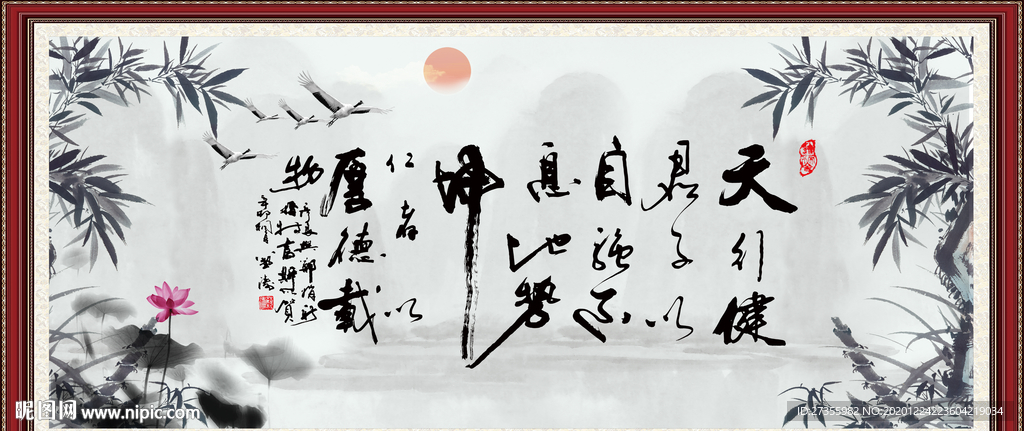 天行健
君子以
自強不
息地勢
坤
仁者以
厚德載
物
昵图网 www.nipic.com
ID:27355982 NO:20201224223604219034